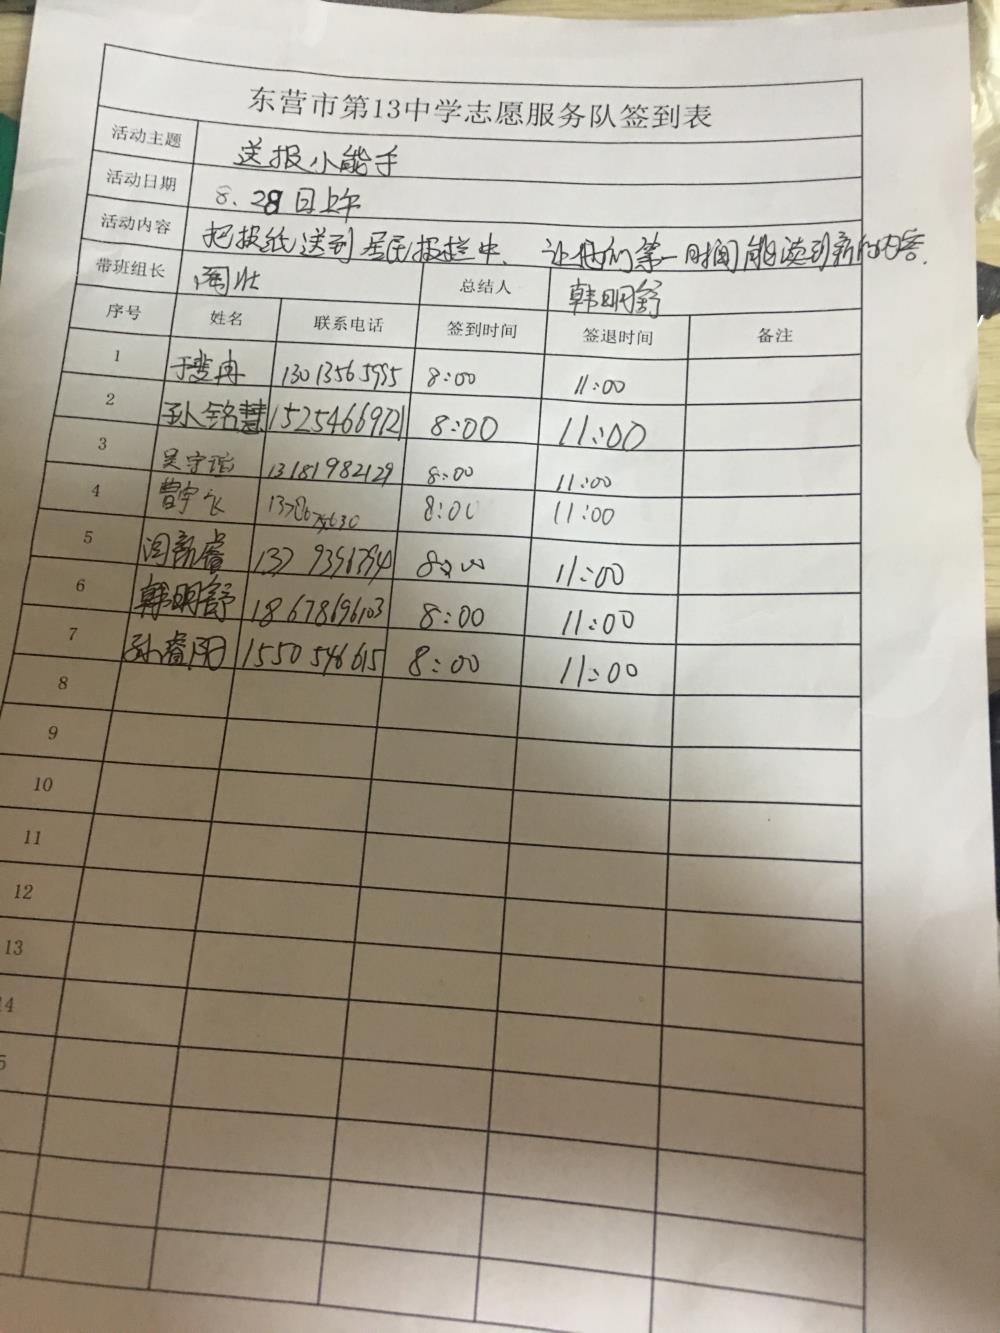 东营市第13中学志愿服务队签到表
活动主题 送报小能手
活动日期 8.28日上午
活动内容 把报纸送到居民报栏中、让他们第一时间能读到新的内容.
带班组长 周壮 总结人 韩明舒
序号 姓名 联系电话 签到时间 签退时间 备注
1 于斐冉 13013565995 8:00 11:00
2 孙铭慧 15254669721 8:00 11:00
3 吴宇谐 13181982129 8:00 11:00
4 曹宇飞 8:00 11:00
5 闫新睿 8:00 11:00
6 韩明舒 18678696103 8:00 11:00
7 孙睿阳 1550546615 8:00 11:00
8
9
10
11
12
13
14
5